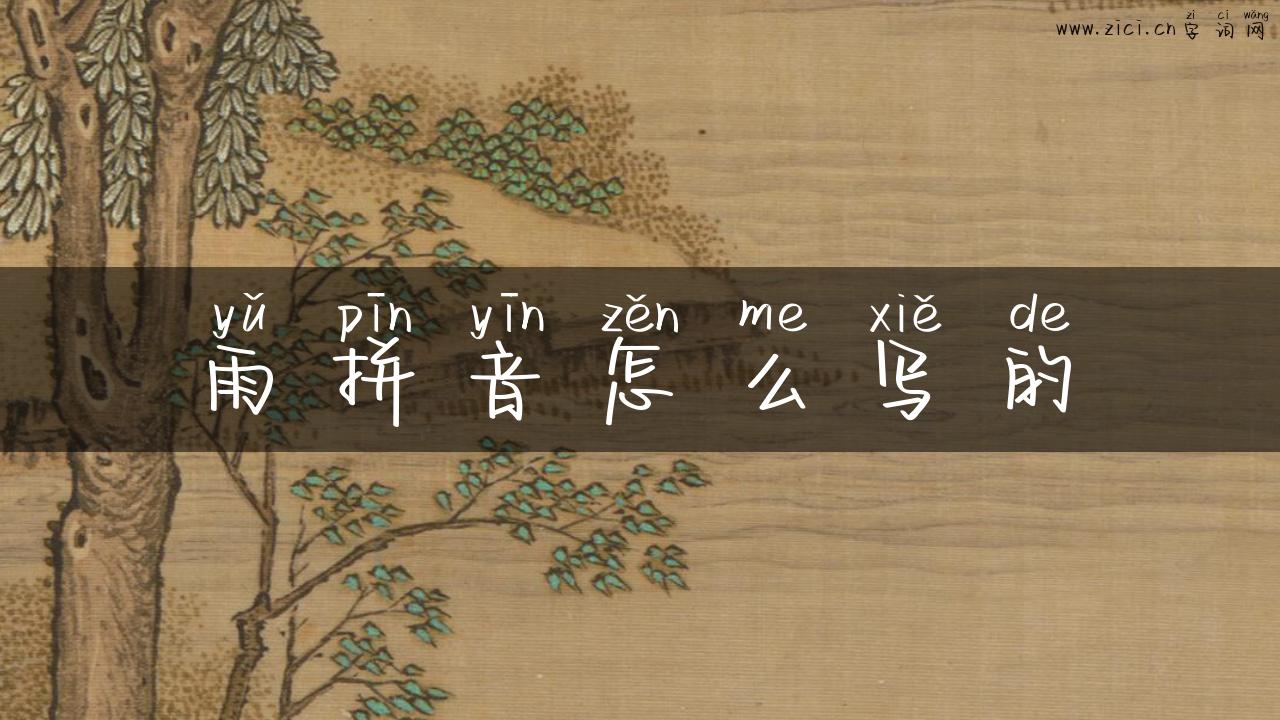 zì cí wǎng
www.zici.cn字词网
yǔ pīn yīn zěn me xiě de
雨拼音怎么写的